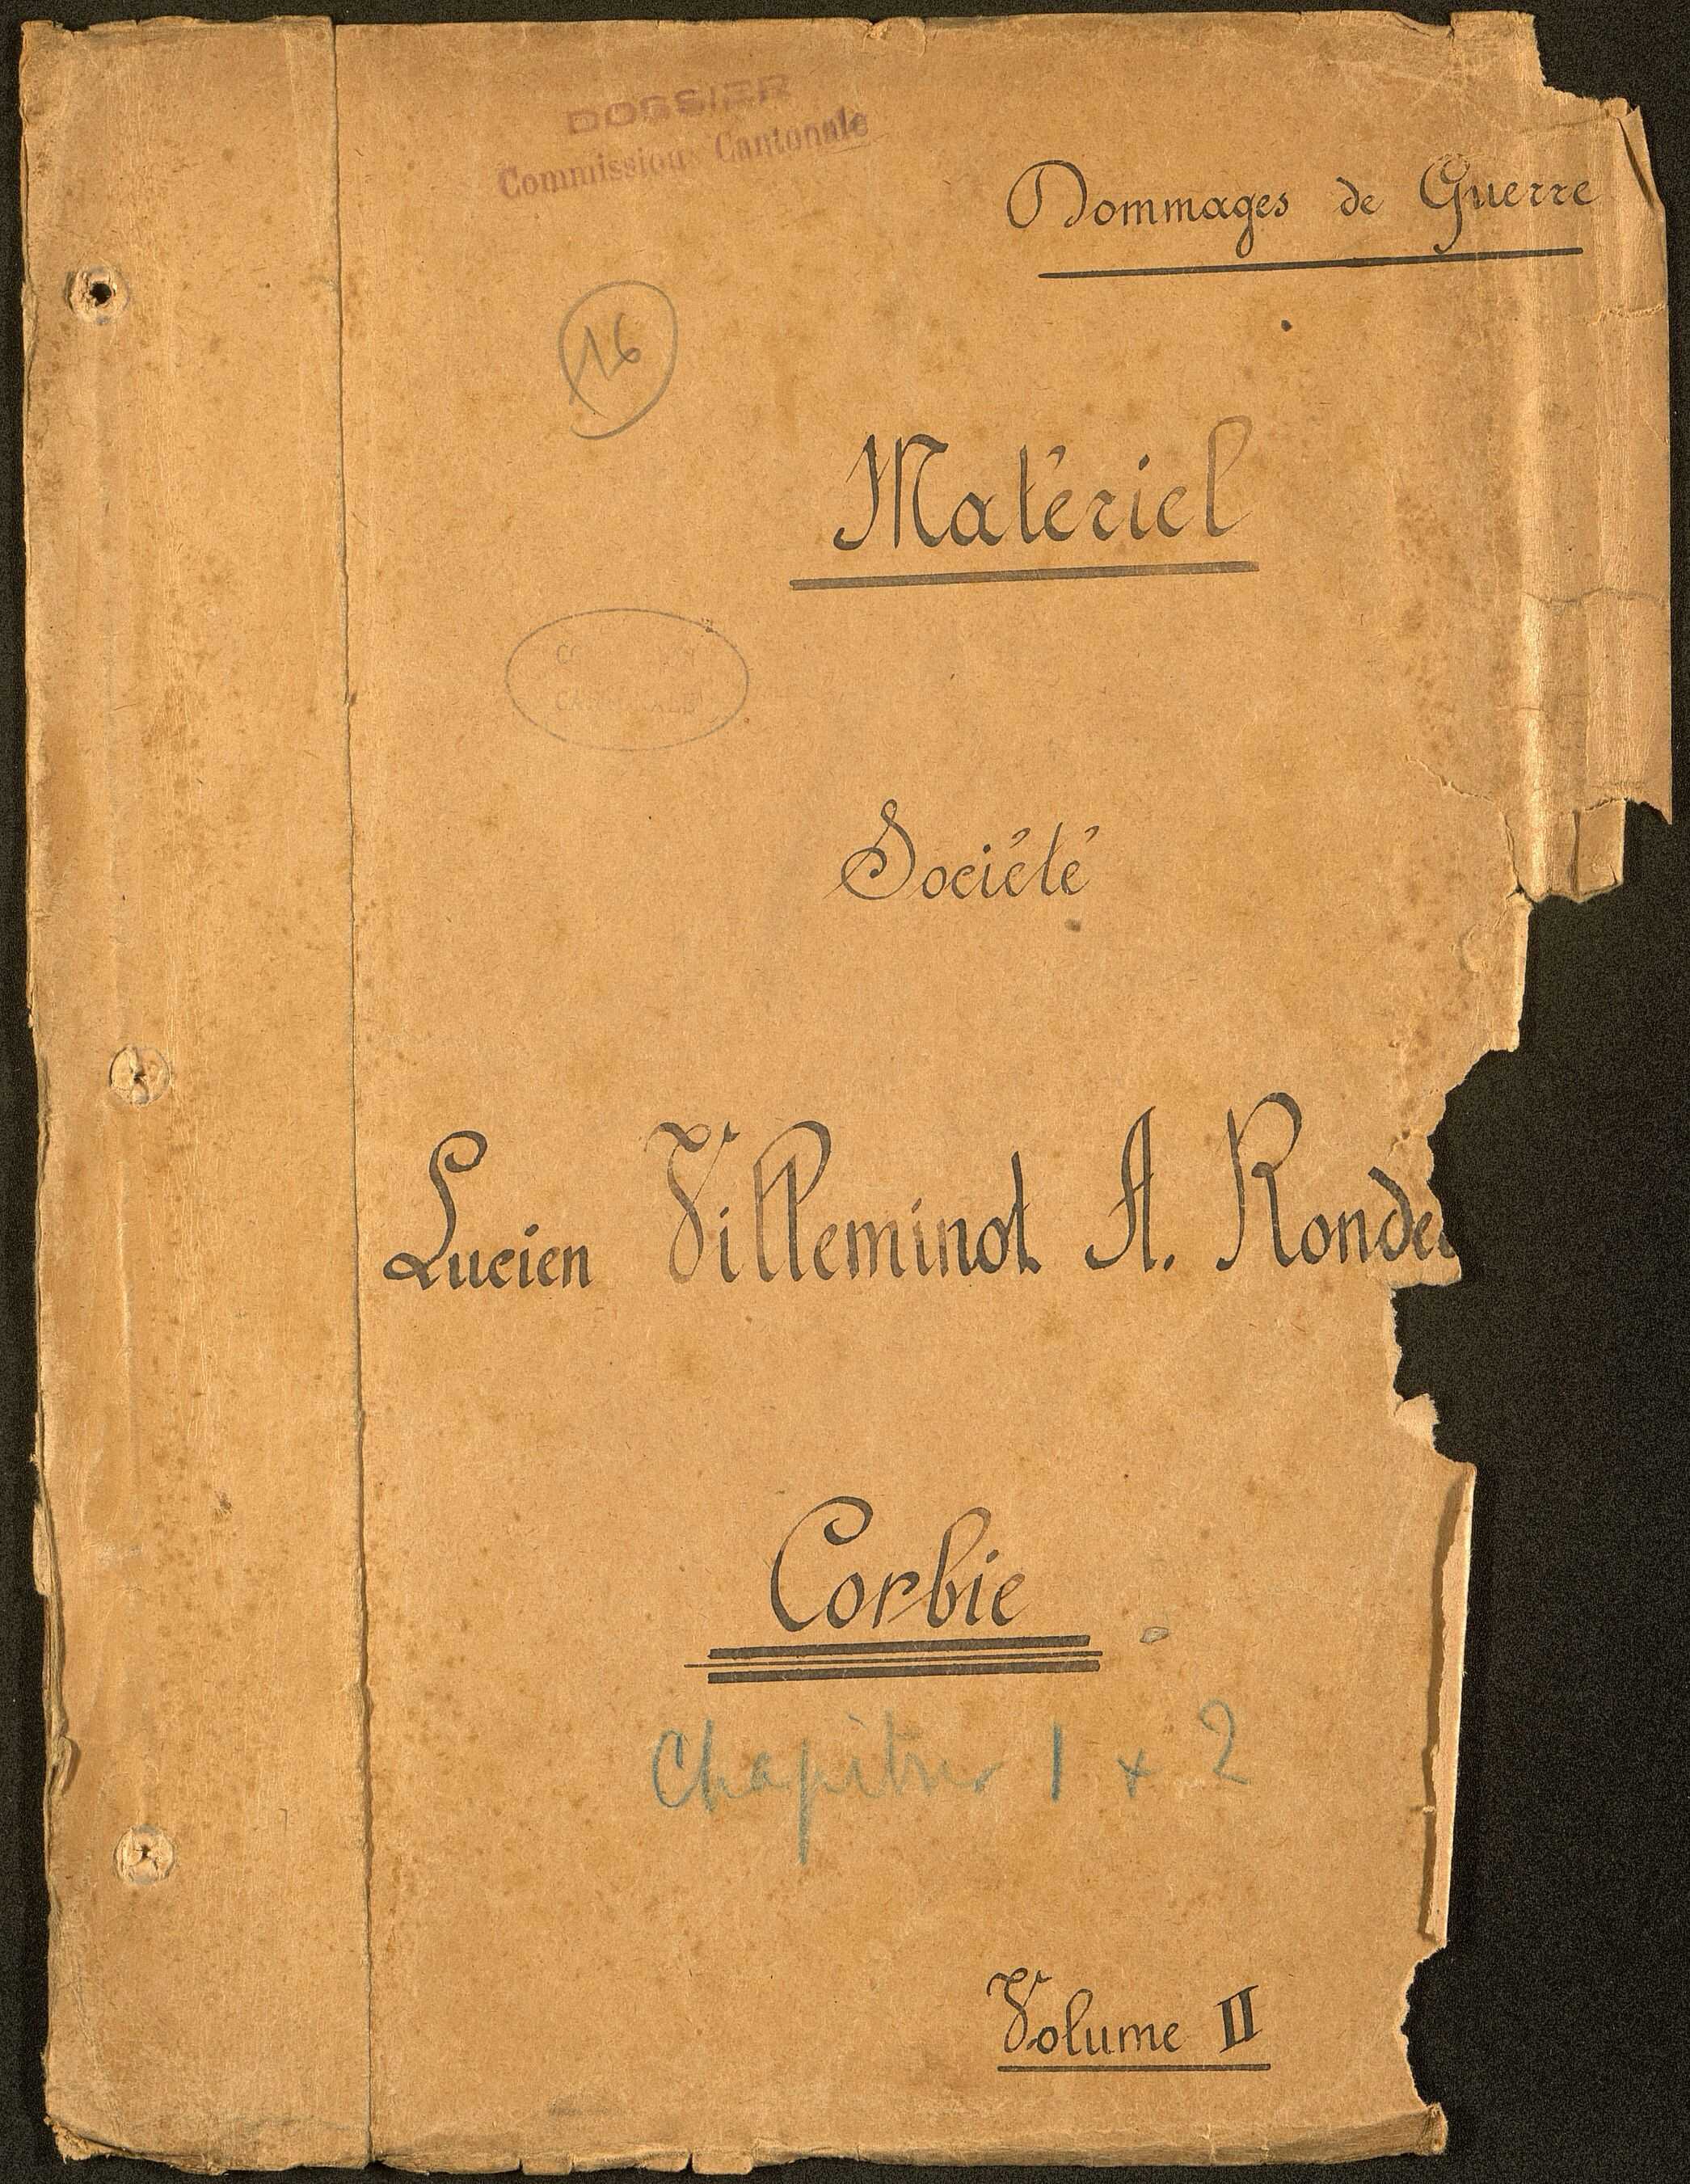 DOSSIER
Commission Cantonale
Dommages de Guerre
16
Matériel
Société
Lucien Villeminot A. Ronde
Corbie
Chapitres 1 + 2
Volume II